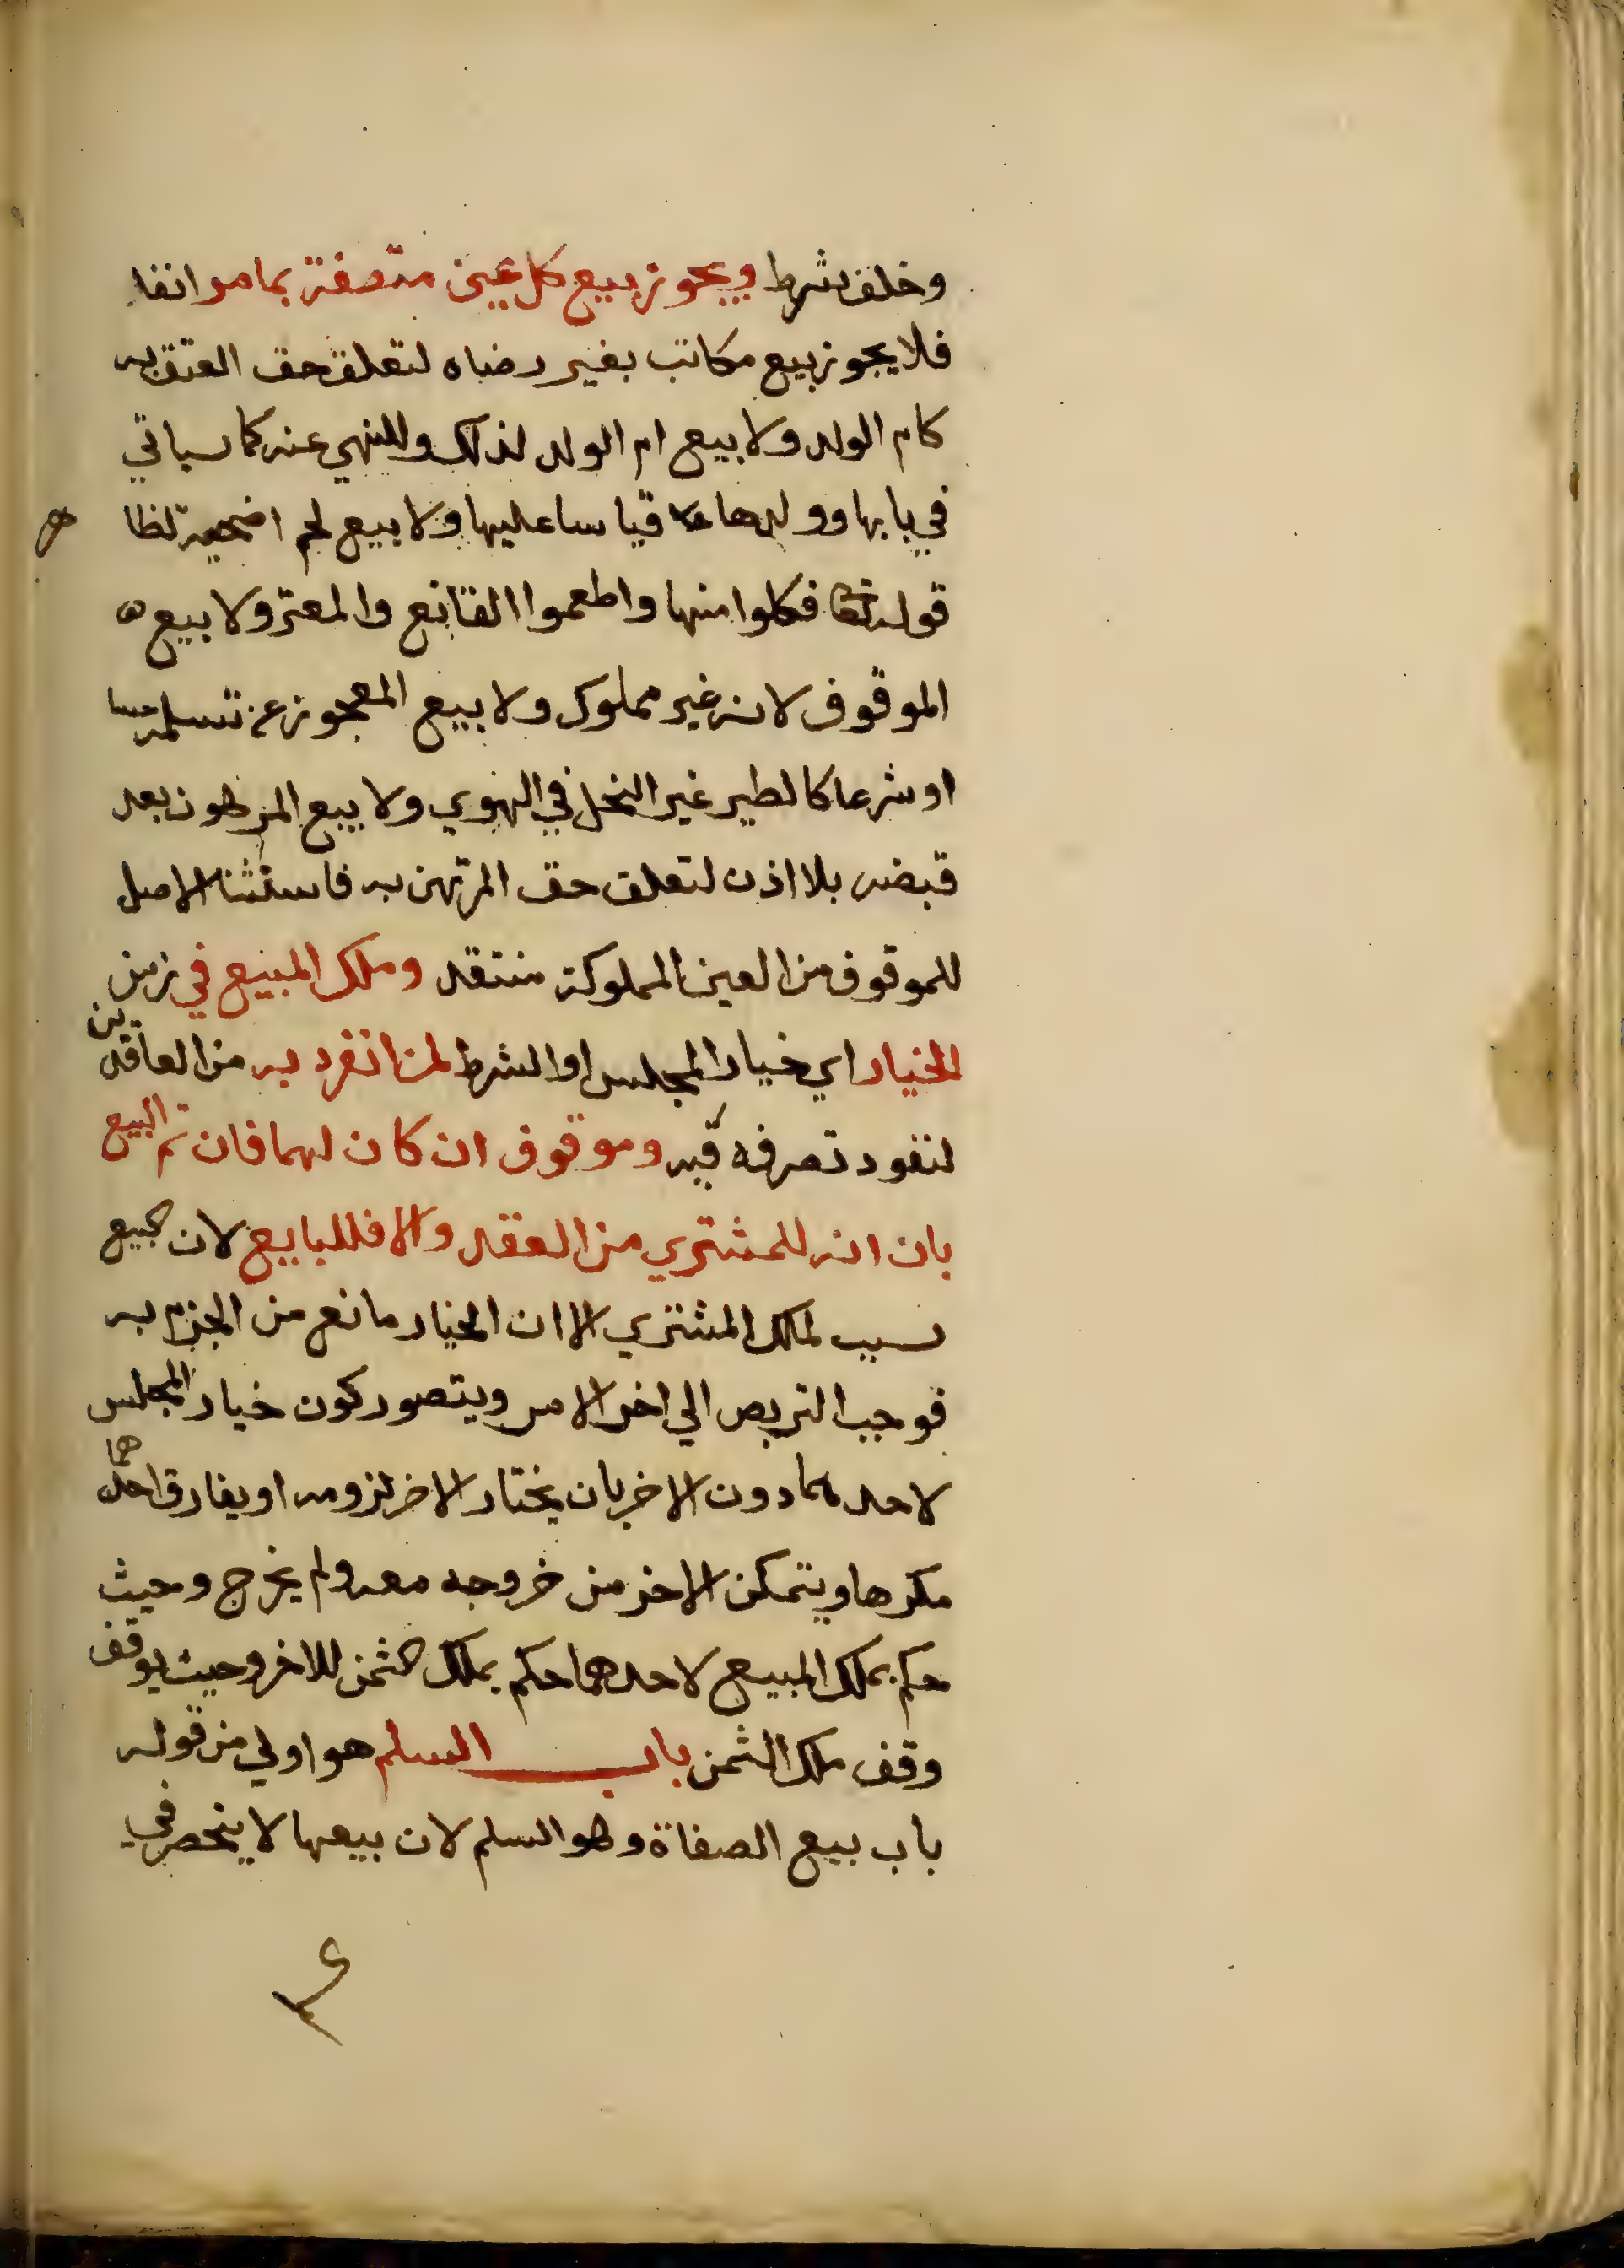 وخلف شرط ويجوز بيع كل عين متصفة بما مر انفا
فلا يجوز بيع مكاتب بغير رضاه لتعلق حق العتق به
كام الولد ولا بيع ام الولد لذلك وللنهي عنه كما سياتي
في بابها وولدها قياسا عليها ولا بيع لحم اضحية لظا
قوله تعا فكلوا منها واطعموا القانع والمعتر ولا بيع
الموقوف لانه غير مملوك ولا بيع المعجوز عن تسلمه حسا
او شرعا كالطير غير النحل في الهوي ولا بيع المرهون بعد
قبضه بلا اذن لتعلق حق المرتهن به فاستثنا الاصل
للموقوف من العين المملوكة منتقد وملك المبيع في زمن
الخيار اي خيار المجلس او الشرط لمن انفرد به من العاقدين
لنفود تصرفه فيه وموقوف ان كان لهما فان تم البيع
بان انه للمشتري من العقد والا فللبايع لان البيع
سبب لملك المشتري الا ان الخيار مانع من الجزم به
فوجب التربص الي اخر الامر ويتصور كون خيار المجلس
لاحدهما دون الاخر بان يختار الاخر لزومه او يفارق احدهما
مكرها ويتمكن الاخر من خروجه معه ولم يخرج وحيث
حكم بملك المبيع لاحدهما حكم بملك الثمن للاخر وحيث يوقف
وقف ملك الثمن باب السلم هو اولي من قوله
باب بيع الصفاة وهو السلم لان بيعها لا ينحصر في